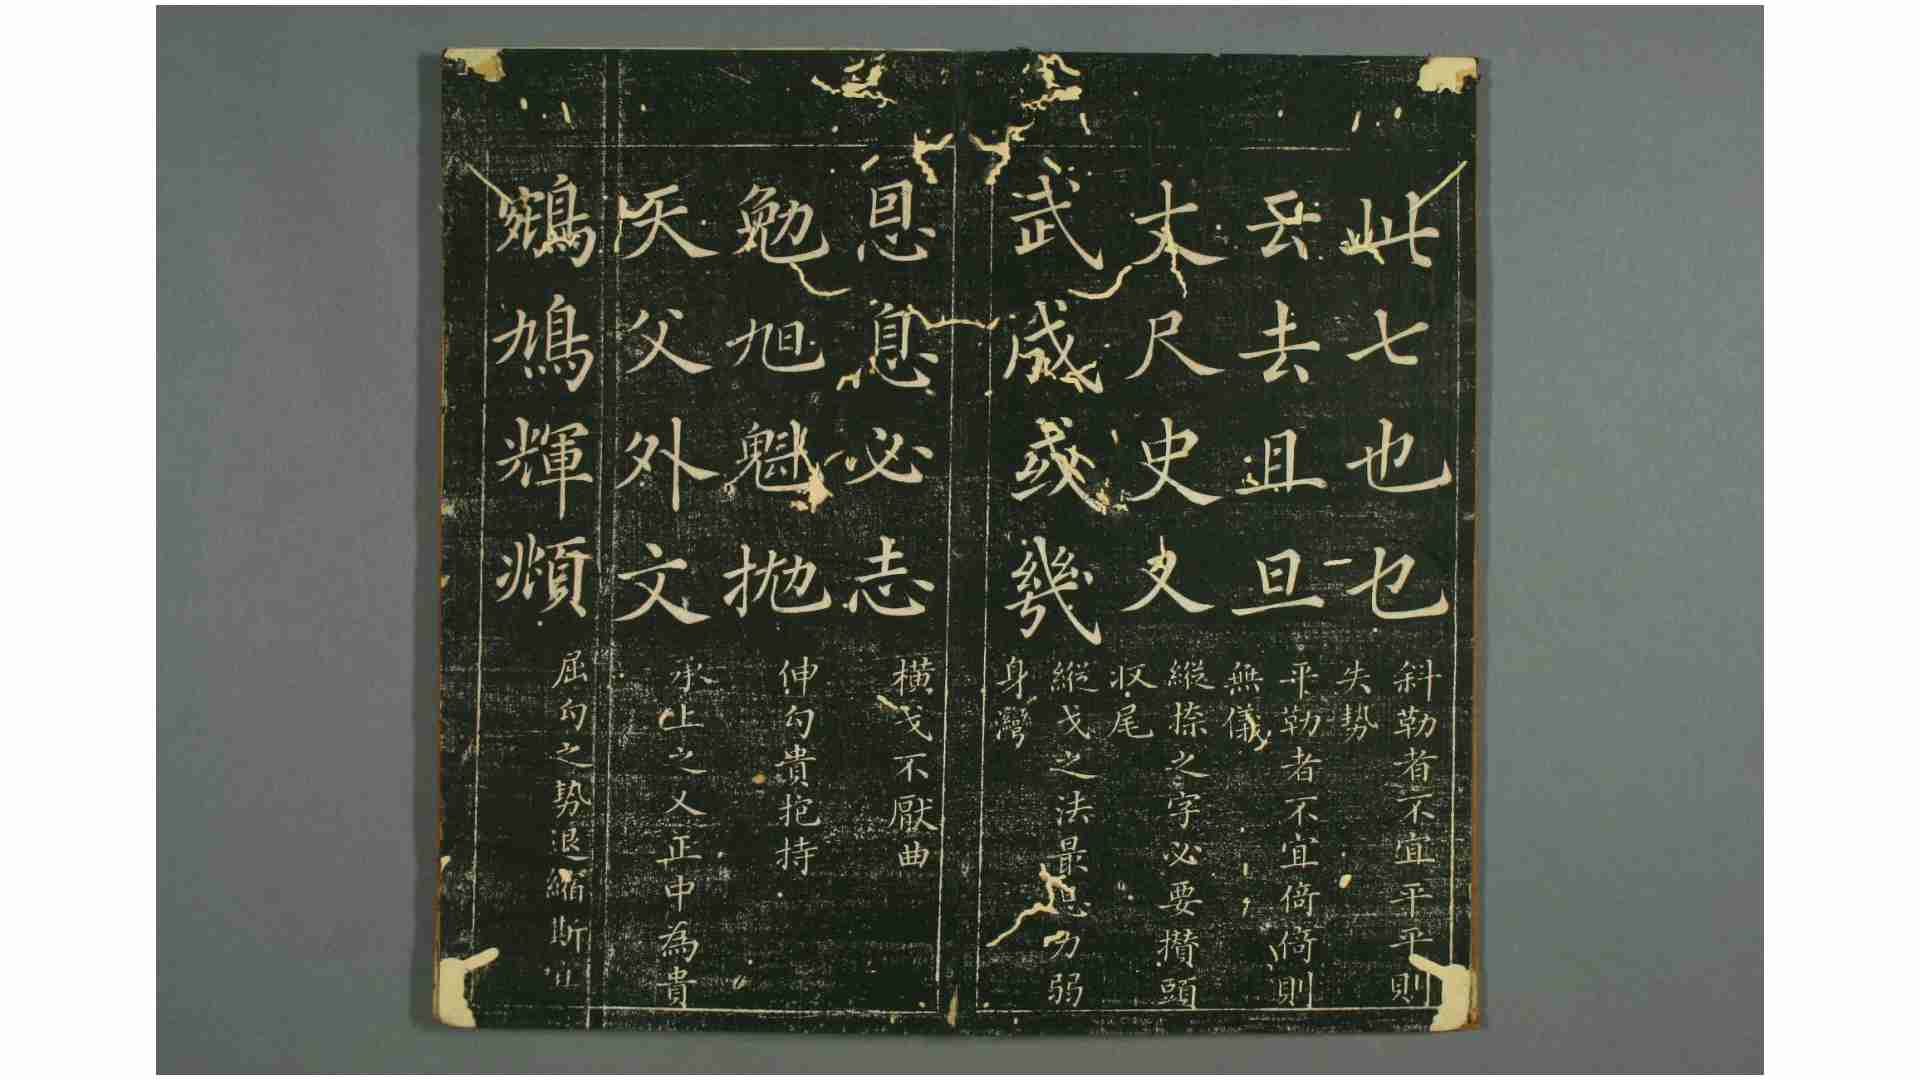 此七也乜
斜勒者不宜平平則
失勢
云去且旦
平勒者不宜倚倚則
無儀
丈尺史又
縱捺之字必要攢頭
収尾
武成或幾
縱戈之法最忌力弱
身灣
恩息必志
橫戈不厭曲
勉旭魁拋
伸勾貴抱持
天父外文
承上之乂正中為貴
鵷鳩輝頫
屈勾之勢退縮斯宜